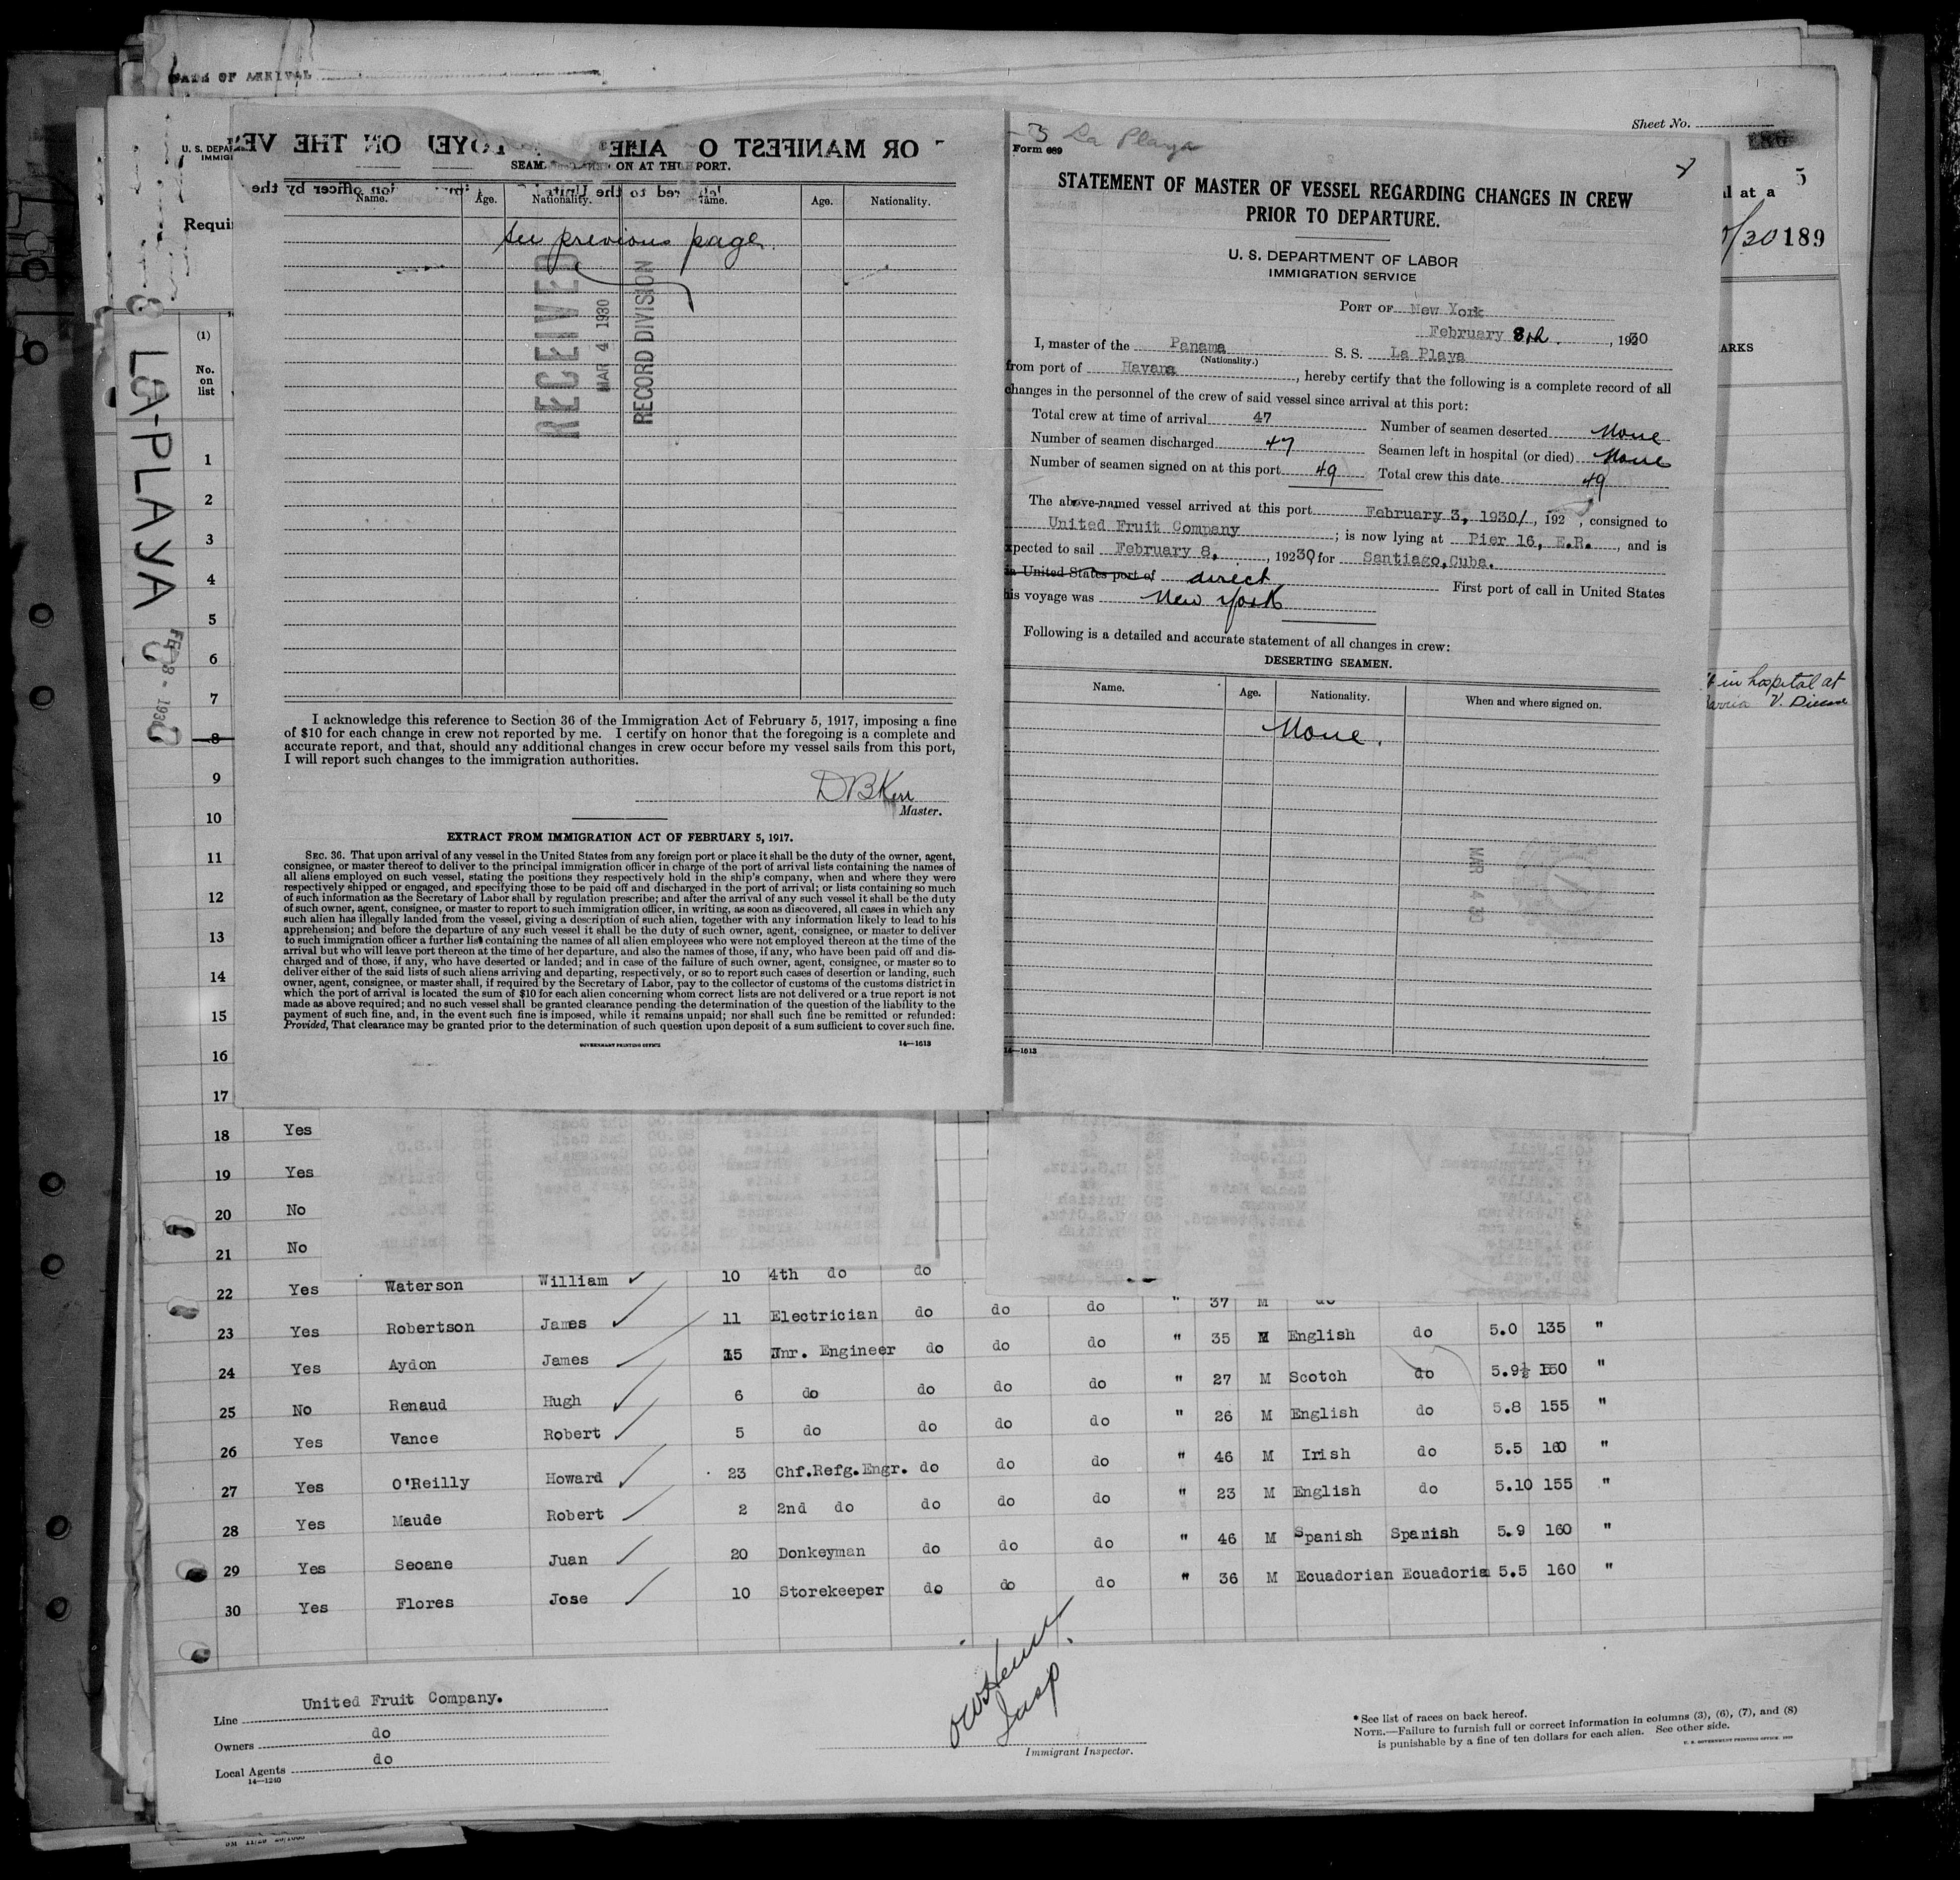 DATE OF ARRIVAL
Sheet No.
5
U. S. DEPAR
IMMIGR
Requi
l at a
/30 189
ARKS
LA-PLAYA
FEB 8 - 1930
(1)
No.
on
list
SEAMEN SIGNED ON AT THIS PORT.
Name. Age. Nationality. Name. Age. Nationality.
See previous page.
RECEIVED
MAR 4 1930
RECORD DIVISION
I acknowledge this reference to Section 36 of the Immigration Act of February 5, 1917, imposing a fine
of $10 for each change in crew not reported by me. I certify on honor that the foregoing is a complete and
accurate report, and that, should any additional changes in crew occur before my vessel sails from this port,
I will report such changes to the immigration authorities.
D B Kerr
Master.
EXTRACT FROM IMMIGRATION ACT OF FEBRUARY 5, 1917.
SEC. 36. That upon arrival of any vessel in the United States from any foreign port or place it shall be the duty of the owner, agent,
consignee, or master thereof to deliver to the principal immigration officer in charge of the port of arrival lists containing the names of
all aliens employed on such vessel, stating the positions they respectively hold in the ship's company, when and where they were
respectively shipped or engaged, and specifying those to be paid off and discharged in the port of arrival; or lists containing so much
of such information as the Secretary of Labor shall by regulation prescribe; and after the arrival of any such vessel it shall be the duty
of such owner, agent, consignee, or master to report to such immigration officer, in writing, as soon as discovered, all cases in which any
such alien has illegally landed from the vessel, giving a description of such alien, together with any information likely to lead to his
apprehension; and before the departure of any such vessel it shall be the duty of such owner, agent, consignee, or master to deliver
to such immigration officer a further list containing the names of all alien employees who were not employed thereon at the time of the
arrival but who will leave port thereon at the time of her departure, and also the names of those, if any, who have been paid off and dis-
charged and of those, if any, who have deserted or landed; and in case of the failure of such owner, agent, consignee, or master so to
deliver either of the said lists of such aliens arriving and departing, respectively, or so to report such cases of desertion or landing, such
owner, agent, consignee, or master shall, if required by the Secretary of Labor, pay to the collector of customs of the customs district in
which the port of arrival is located the sum of $10 for each alien concerning whom correct lists are not delivered or a true report is not
made as above required; and no such vessel shall be granted clearance pending the determination of the question of the liability to the
payment of such fine, and, in the event such fine is imposed, while it remains unpaid; nor shall such fine be remitted or refunded:
Provided, That clearance may be granted prior to the determination of such question upon deposit of a sum sufficient to cover such fine.
GOVERNMENT PRINTING OFFICE 14—1613
La Playa
Form 689
STATEMENT OF MASTER OF VESSEL REGARDING CHANGES IN CREW
PRIOR TO DEPARTURE.
U. S. DEPARTMENT OF LABOR
IMMIGRATION SERVICE
PORT OF New York
February 8th. , 1930
I, master of the Panama S. S. La Playa
(Nationality.)
from port of Havana , hereby certify that the following is a complete record of all
changes in the personnel of the crew of said vessel since arrival at this port:
Total crew at time of arrival 47 Number of seamen deserted None
Number of seamen discharged 47 Seamen left in hospital (or died) None
Number of seamen signed on at this port 49 Total crew this date 49
The above-named vessel arrived at this port February 3, 1930/ , 192 , consigned to
United Fruit Company ; is now lying at Pier 16, E.R. , and is
xpected to sail February 8, , 19230, for Santiago,Cuba.
ia United States port of direct First port of call in United States
his voyage was New York
Following is a detailed and accurate statement of all changes in crew:
DESERTING SEAMEN.
Name. Age. Nationality. When and where signed on.
None.
MAR 4 30
14—1613
in hospital at
1
2
3
4
5
6
7
8
9
10
11
12
13
14
15
16
17
18 Yes
19 Yes
20 No
21 No
22 Yes Waterson William 10 4th do do
23 Yes Robertson James 11 Electrician do do do " 37 M do
24 Yes Aydon James 15 Jnr. Engineer do do do " 35 M English do 5.0 135 "
25 No Renaud Hugh 6 do do do do " 27 M Scotch do 5.9½ 150 "
26 Yes Vance Robert 5 do do do do " 26 M English do 5.8 155 "
27 Yes O'Reilly Howard 23 Chf.Refg.Engr. do do do " 46 M Irish do 5.5 160 "
28 Yes Maude Robert 2 2nd do do do do " 23 M English do 5.10 155 "
29 Yes Seoane Juan 20 Donkeyman do do do " 46 M Spanish Spanish 5.9 160 "
30 Yes Flores Jose 10 Storekeeper do do do " 36 M Ecuadorian Ecuadoria 5.5 160 "
Line United Fruit Company.
Owners do
Local Agents do
14—1240
Insp
Immigrant Inspector.
* See list of races on back hereof.
NOTE.—Failure to furnish full or correct information in columns (3), (6), (7), and (8)
is punishable by a fine of ten dollars for each alien. See other side.
U. S. GOVERNMENT PRINTING OFFICE: 1929